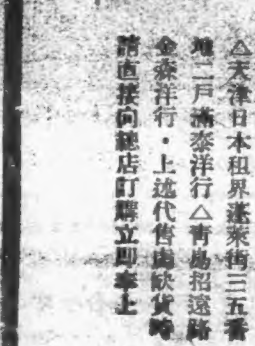 △天津日本租界蓬萊街三五番
地二戶滿泰洋行△青島招遠路
金森洋行・上述代售處缺貨時
請直接向總店訂購立即奉上